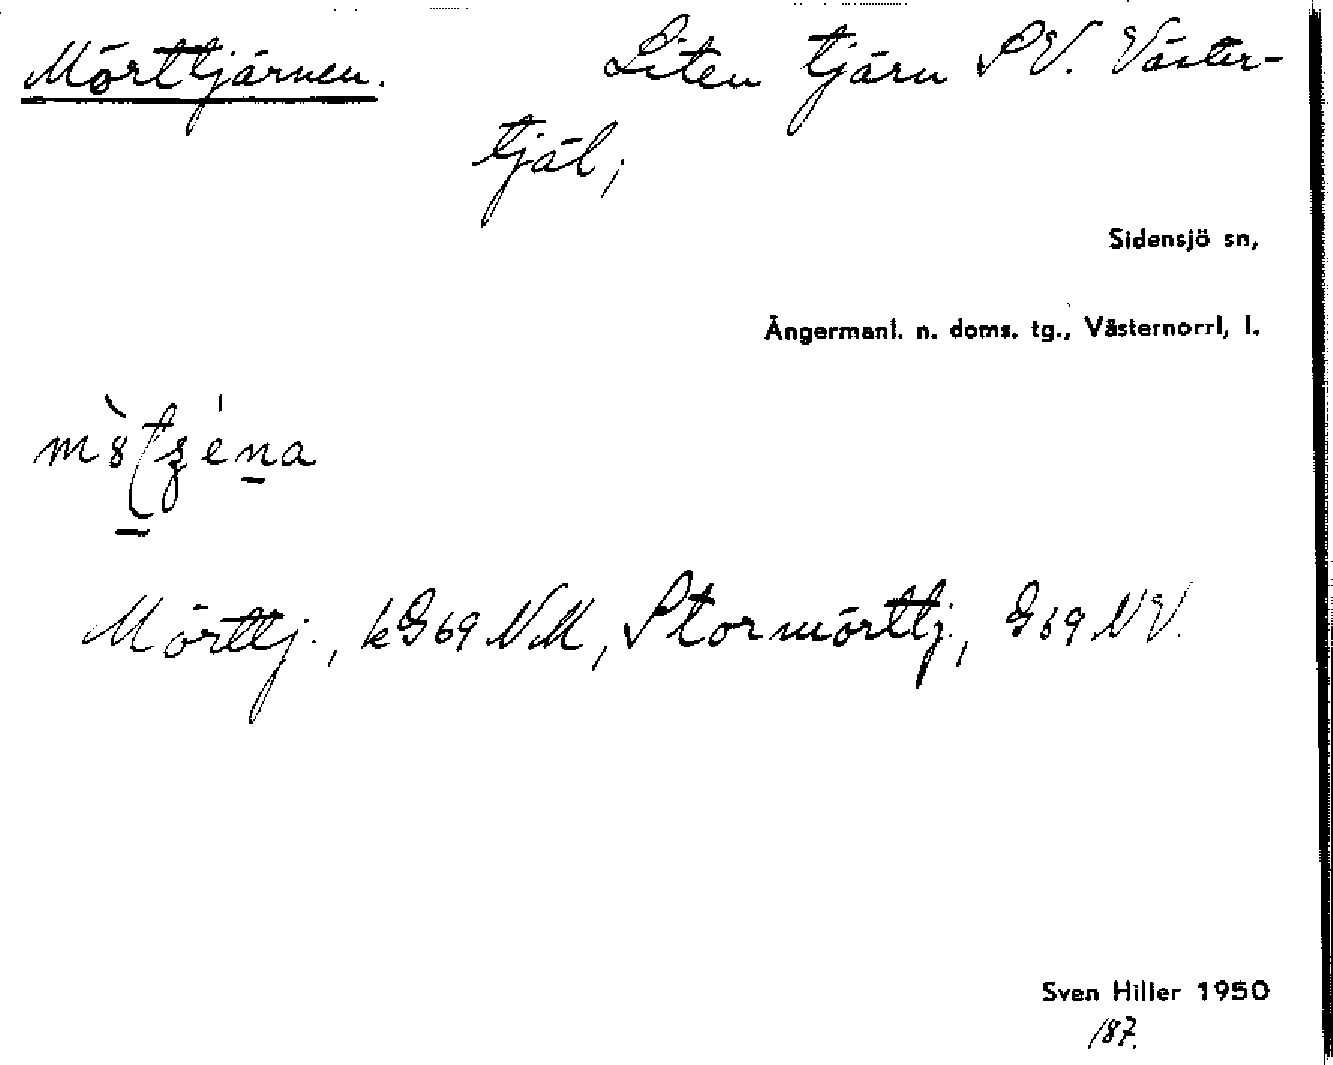 Mörttjärnen. Liten tjärn SV. Väster-
tjäl,
Sidensjö sn,
Ångermanl. n. doms. tg., Västernorrl, l.
Mörttj., kG69NM, Stormörttj., G69NV.
Sven Hiller 1950
187.